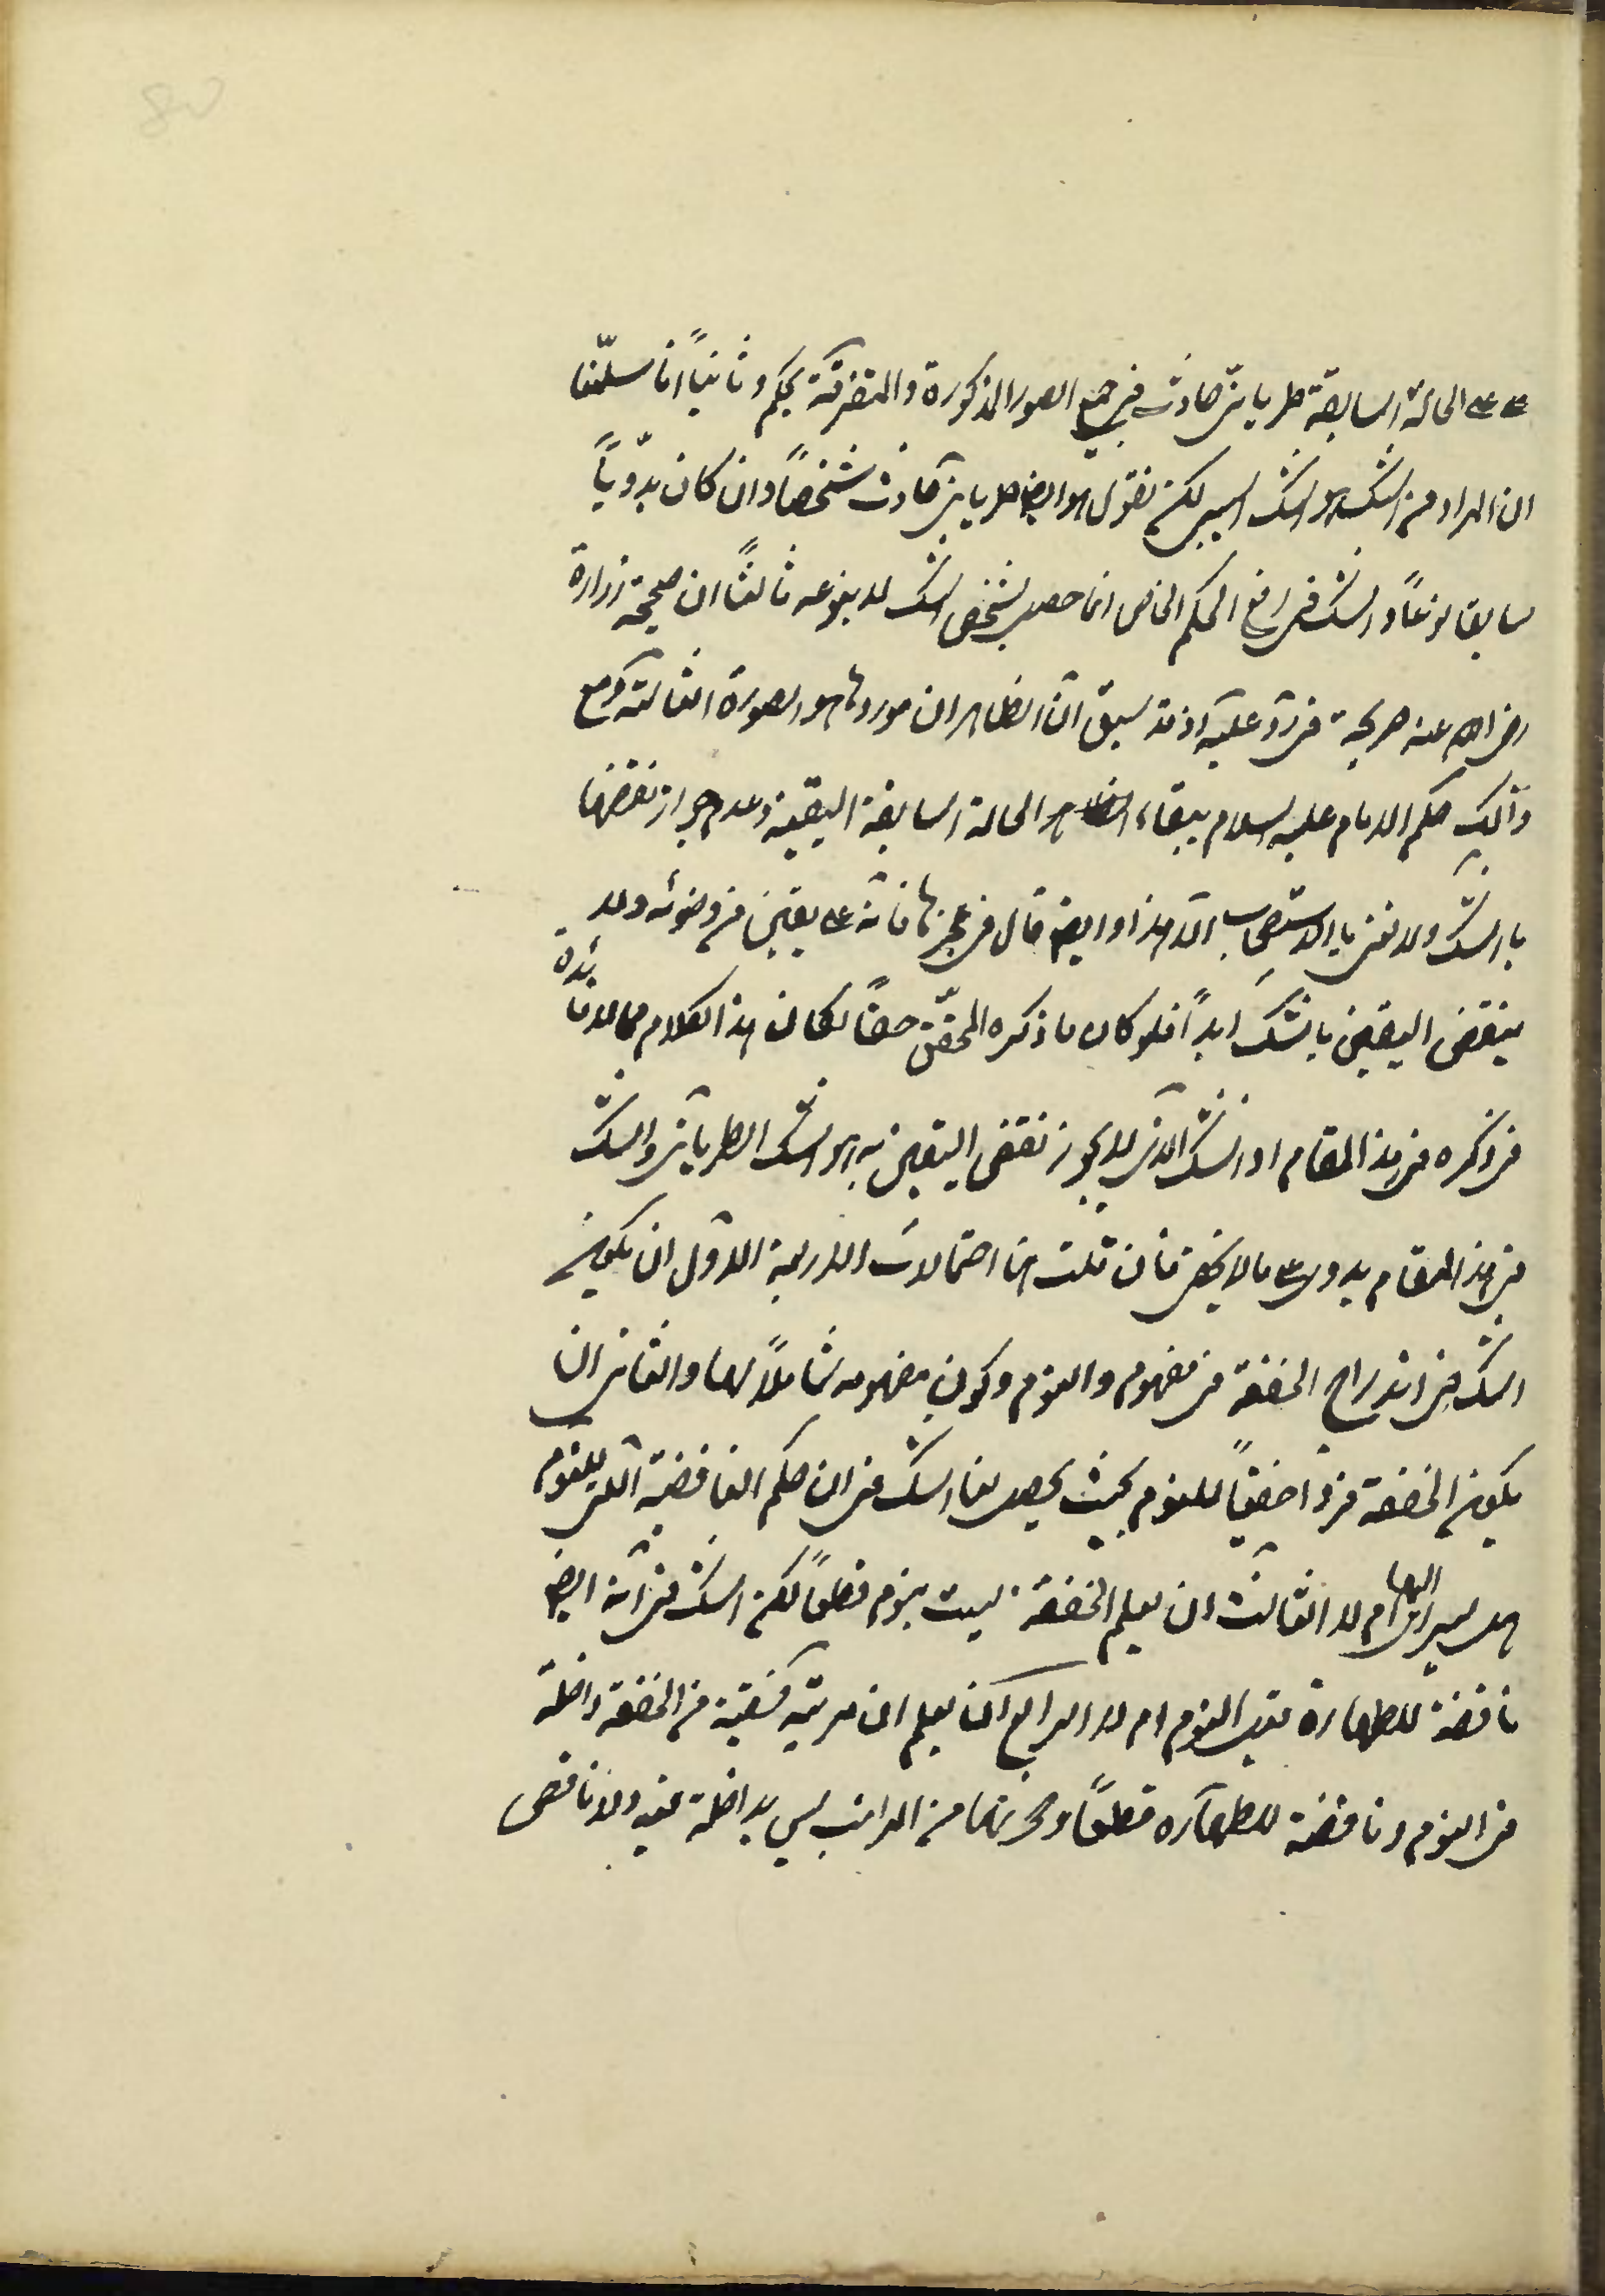 على الحالة السابقة طريانى حادث فى جميع الصور المذكورة والمتفرقة بحكم وثانياً انا سلّمنا
ان المراد من الشك هو الشك لكن نقول هو ايضا طريانى حادث شخصاً وان كان بدوّياً
سابقا نوعاً والشك فى رافع الحكم الخاص انما حصل بشخص الشك لا بنوعه ثالثاً ان صحيحة زرارة
رضى الله عنه صريحة فى ردّ عليه اذ قد سبق انّ الظاهر ان موردها هو الصورة الثالثة ومع
ذلك حكم الامام عليه السلام ببقاء الحالة السابقة اليقينة وعدم جواز نقضها
بالشك ولا نعنى بالاستصحاب الا هذا وايضا قال فى عجزها فانّه على يقين من وضوئه ولا
ينقض اليقين بالشك ابداً فلو كان ما ذكره المحقّق حقاً لكان هذا الكلام مما لا فائدة
فى ذكره فى هذا المقام اذ الشك الذى لا يجوز نقض اليقين به هو الشك الطريانى والشك
فى هذا المقام بدوى على ما لا يخفى فان قلت هنا احتمالات الاربعة الاوّل ان يكون
الشك فى اندراج الخفقة فى مفهوم والنوم وكون مفهومه شاملاً لها والثانى ان
يكون الخفقة فردا خفيّاً للنوم بحيث يحصل لنا الشك فى ان حكم الناقضية التى للنوم
هل يسرى اليها ام لا الثالث ان يعلم الخفقة ليست بنوم قطعاً لكن الشك فى انه ايضا
ناقضة للطهارة مثل النوم ام لا الرابع ان يعلم ان مرتبة من الخفقة داخلة
فى النوم وناقضة للطهارة قطعاً وغيرها من المراتب ليس بداخلة فيه ولا ناقض